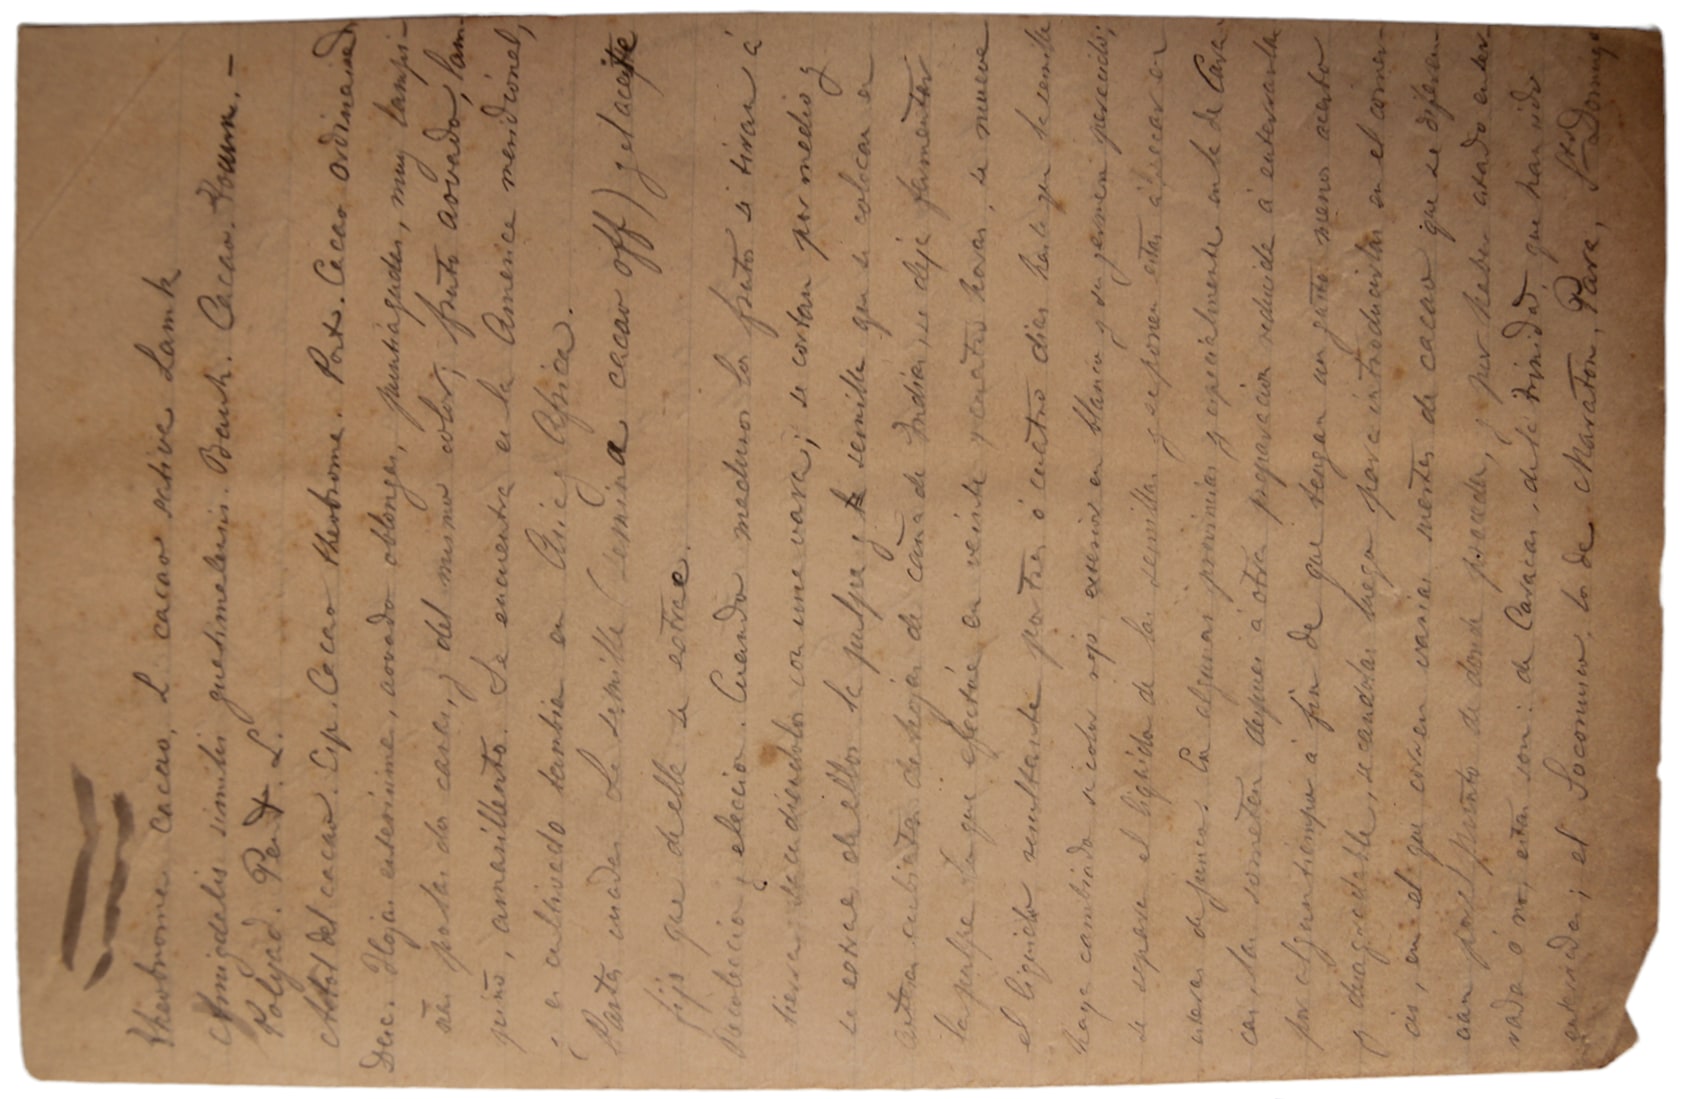 Theobroma cacao, L. cacao sativa Lamk
Amigdalis similis guatimalensis. Bauh. Cacao. Tourn. –
Polyad. Pent. L.
Arbol del cacao. Esp. Cacao theobrome. Port. Cacao ordinario
Desc. Hojas enterisimas, aovado oblongas, puntiagudas, muy lampi-
ñas por las dos caras, y del mismo color; fruto aovado, lam
piño, amarillento. Se encuentra en la America meridional,
i es cultivado tambien en Asia y Africa.
Partes usadas. La semilla (semina cacao off) y el aceite
fijo que de ella se estrae.
Recoleccion y eleccion. Cuando maduros los frutos se tiran á
tierra sacudiendolos con una vara; se cortan por medio y
se estrae de ellos la pulpa y la semilla que se colocan en
artesas cubiertas de hojas de caña de Indias, se deja fermentar
la pulpa lo que efectúa en veinte y cuatro horas, se mueve
el liquido resultante por tres ó cuatro dias hasta que la semilla
haya cambiado su color rojo en blanco y su germen perecido;
se separa el liquido de las semillas y se ponen estas á secar en
esteras de junco. En algunas provincias y especialmente en la de Cara
cas las someten despues á otra preparacion reducida á enterrarlas
por algun tiempo á fin de que tengan un gusto menos acerbo
y desagradable, secandolas luego para introducirlas en el comer-
cio, en el que corren varias suertes de cacao que se diferen
cian por el punto de donde proceden, y por haber estado enter
rado ó no, estas son: de Caracas, de la Trinidad que han sido
enterradas; el Soconusco, los de Marañon, Para, Sto Domingo